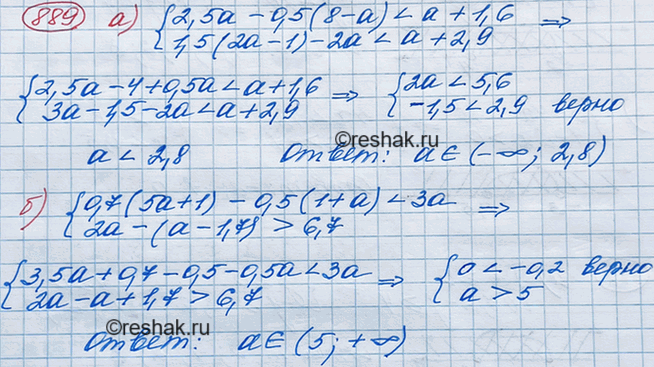 889 а) {2,5a - 0,5(8-a) < a + 1,6 ⇒
{1,5(2a-1) - 2a < a + 2,9
{2,5a - 4 + 0,5a < a + 1,6 ⇒ {2a < 5,6
{3a - 1,5 - 2a < a + 2,9 {-1,5 < 2,9 верно
©reshak.ru
a < 2,8 Ответ: a∈(-∞; 2,8)
б) {0,7(5a+1) - 0,5(1+a) < 3a ⇒
{2a - (a - 1,7) > 6,7
{3,5a + 0,7 - 0,5 - 0,5a < 3a ⇒ {0 < -0,2 верно
{2a - a + 1,7 > 6,7 {a > 5
©reshak.ru
Ответ: a∈(5; +∞)